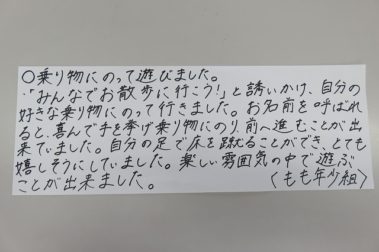 ○乗り物にのって遊びました。
・「みんなでお散歩に行こう!」と誘いかけ、自分の
好きな乗り物にのって行きました。お名前を呼ばれ
ると、喜んで手を挙げ乗り物にのり、前へ進むことが出
来ていました。自分の足で床を蹴ることができ、とても
嬉しそうにしていました。楽しい雰囲気の中で遊ぶ
ことが出来ました。 〈もも年少組〉